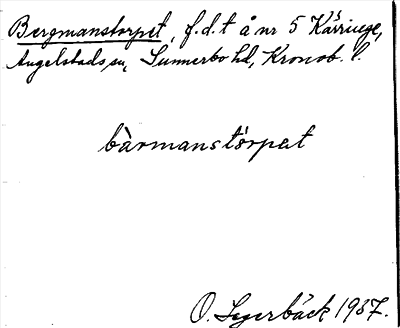 Bergmanstorpet, f.d.t å nr 5 Kärrivege,
Angelstads sn, Sunnerbo hd, Kronob. l.
bàrmanstórpet
O. Segerbäck 1937.